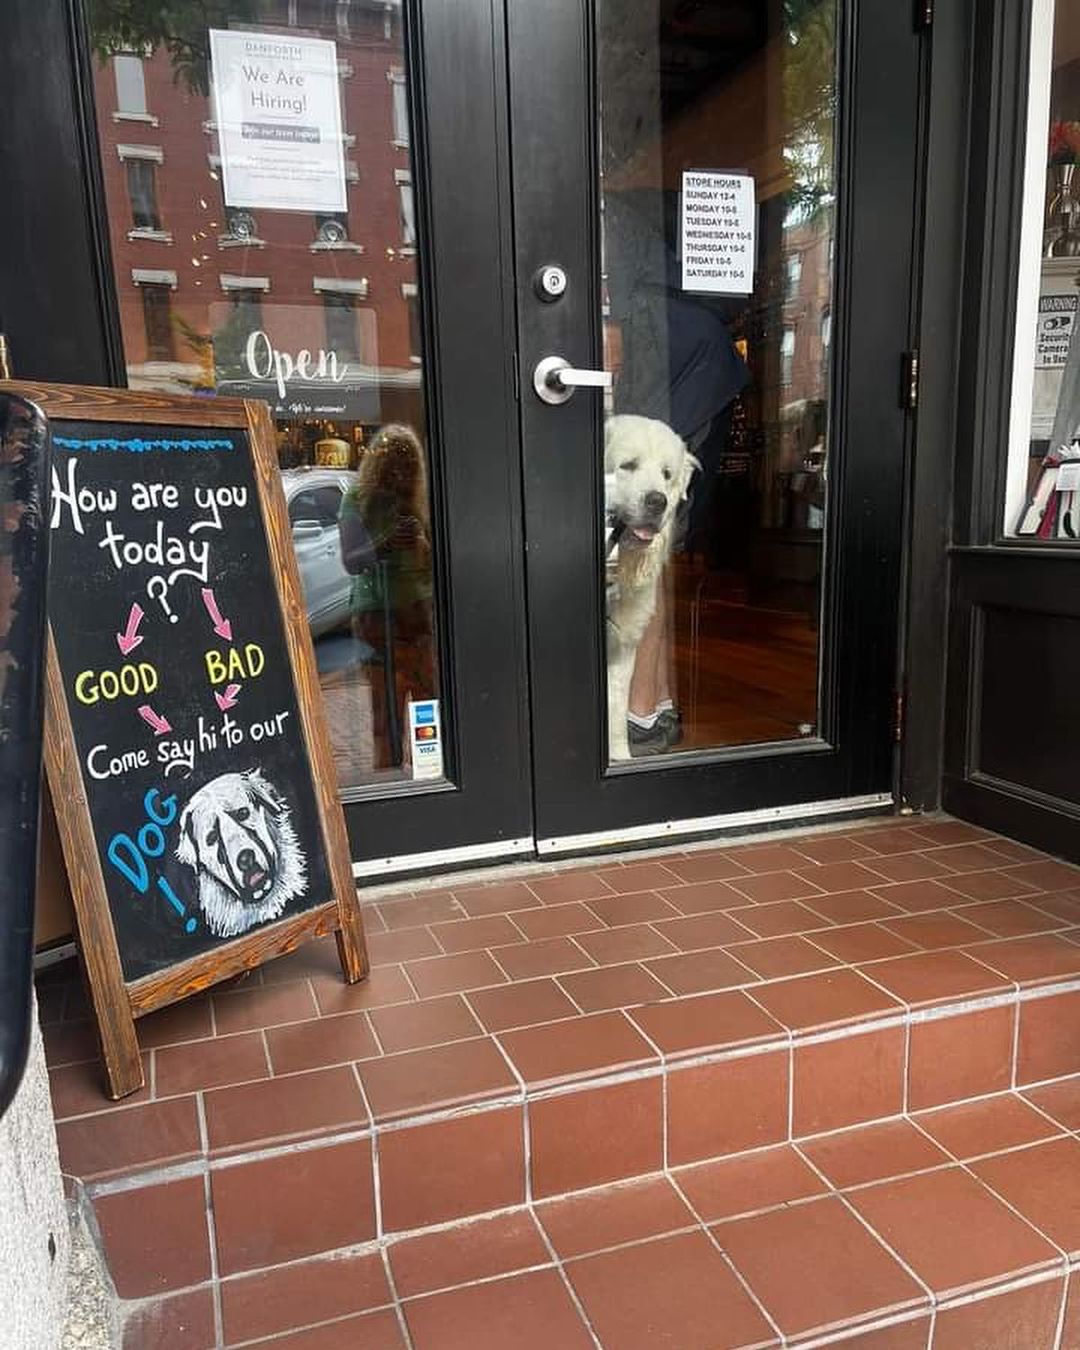 DANFORTH
We Are
Hiring!
Join our team today!
STORE HOURS
SUNDAY 12-4
MONDAY 10-5
TUESDAY 10-5
WEDNESDAY 10-5
THURSDAY 10-5
FRIDAY 10-5
SATURDAY 10-5
WARNING
Security
Camera
In Use
Open
How are you
today
?
GOOD BAD
Come say hi to our
DOG!
VISA